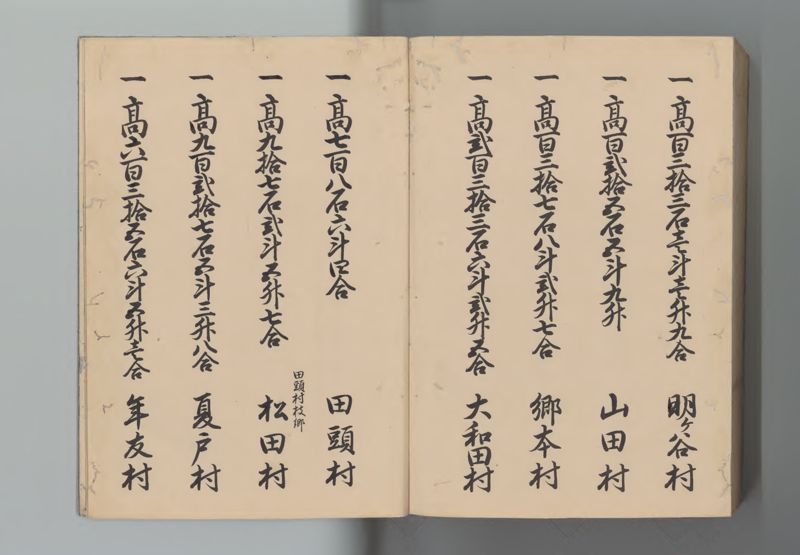 一高百三拾三石壱斗壱升九合 明ケ谷村
一高百弐拾五石五斗九升 山田村
一高百三拾七石八斗弐升七合 郷本村
一高弐百三拾三石六斗弐升五合 大和田村
一高七百八石六斗四合 田頭村
田頭村枝郷
一高九拾七石弐斗五升七合 松田村
一高九百弐拾七石五斗三升八合 夏戸村
一高六百三拾五石六斗五升壱合 年友村